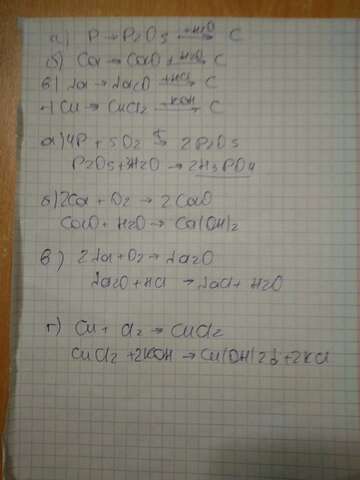 а) P → P2O5 +H2O→ C
б) Ca → CaO +H2O→ C
в) Na → Na2O +HCl→ C
г) Cu → CuCl2 +KOH→ C
а) 4P + 5O2 → 2P2O5
P2O5+3H2O → 2H3PO4
б) 2Ca + O2 → 2CaO
CaO + H2O → Ca(OH)2
в) 2Na + O2 → Na2O
Na2O + HCl → NaCl + H2O
г) Cu + Cl2 → CuCl2
CuCl2 + 2KOH → Cu(OH)2↓ + 2KCl